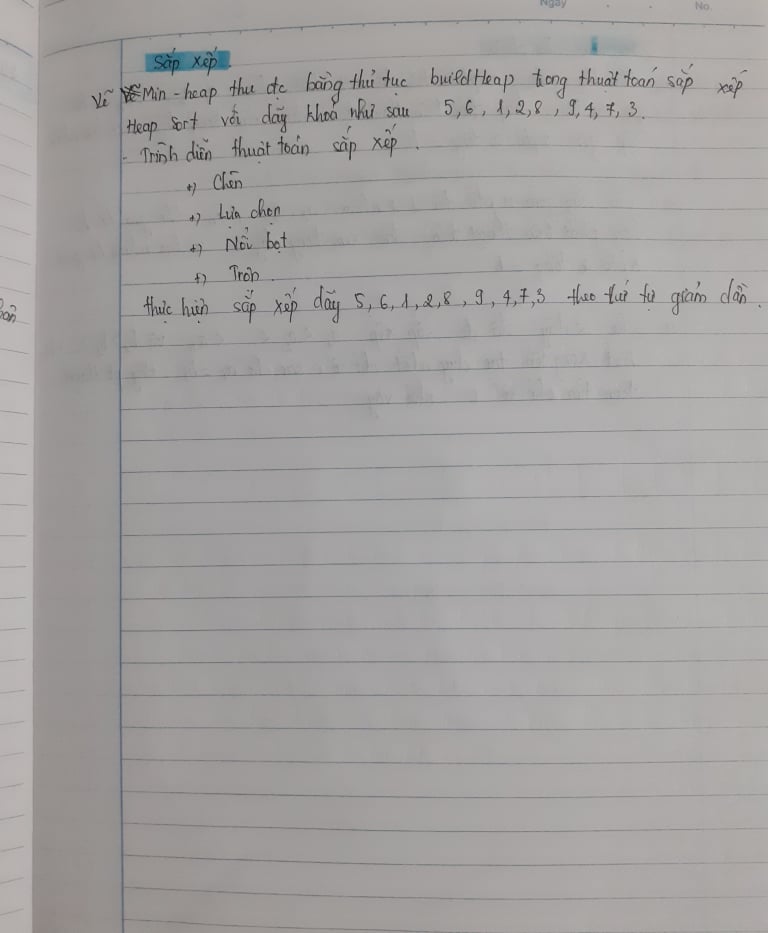 Ngày No.
Sắp xếp.
Vẽ Min-heap thu đc bằng thủ tục buildHeap trong thuật toán sắp xếp
Heap Sort với dãy khoá như sau 5, 6, 1, 2, 8, 9, 4, 7, 3.
- Trình diễn thuật toán sắp xếp.
+) Chèn
+) Lựa chọn
+) Nổi bọt
+) Trộn
thực hiện sắp xếp dãy 5, 6, 1, 2, 8, 9, 4, 7, 3 theo thứ tự giảm dần.